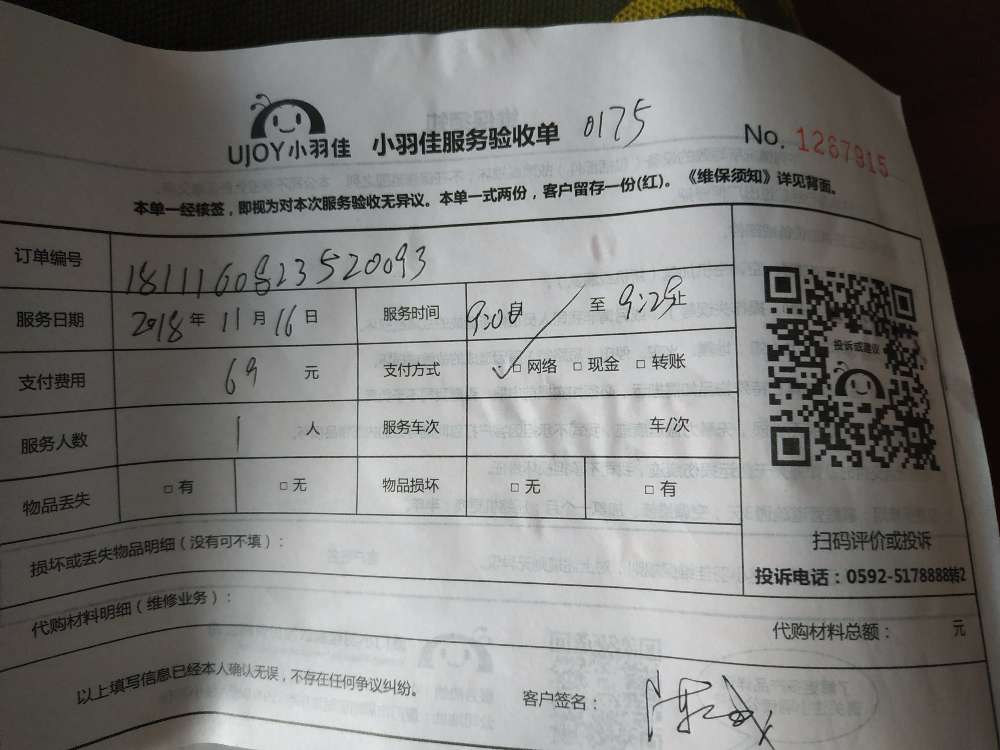 UJOY小羽佳 小羽佳服务验收单 0175 No. 1267915
本单一经核签，即视为对本次服务验收无异议。本单一式两份，客户留存一份(红)。《维保须知》详见背面。
订单编号 1811160823520093
服务日期 2018年11月16日 服务时间 9:00自 至 9:29止
支付费用 69 元 支付方式 ✓□ 网络 □ 现金 □ 转账
服务人数 1 人 服务车次 车/次
物品丢失 □ 有 □ 无 物品损坏 □ 无 □ 有
投诉或建议
扫码评价或投诉
投诉电话：0592-5178888转2
损坏或丢失物品明细（没有可不填）：
代购材料明细（维修业务）： 代购材料总额： 元
以上填写信息已经本人确认无误，不存在任何争议纠纷。 客户签名：